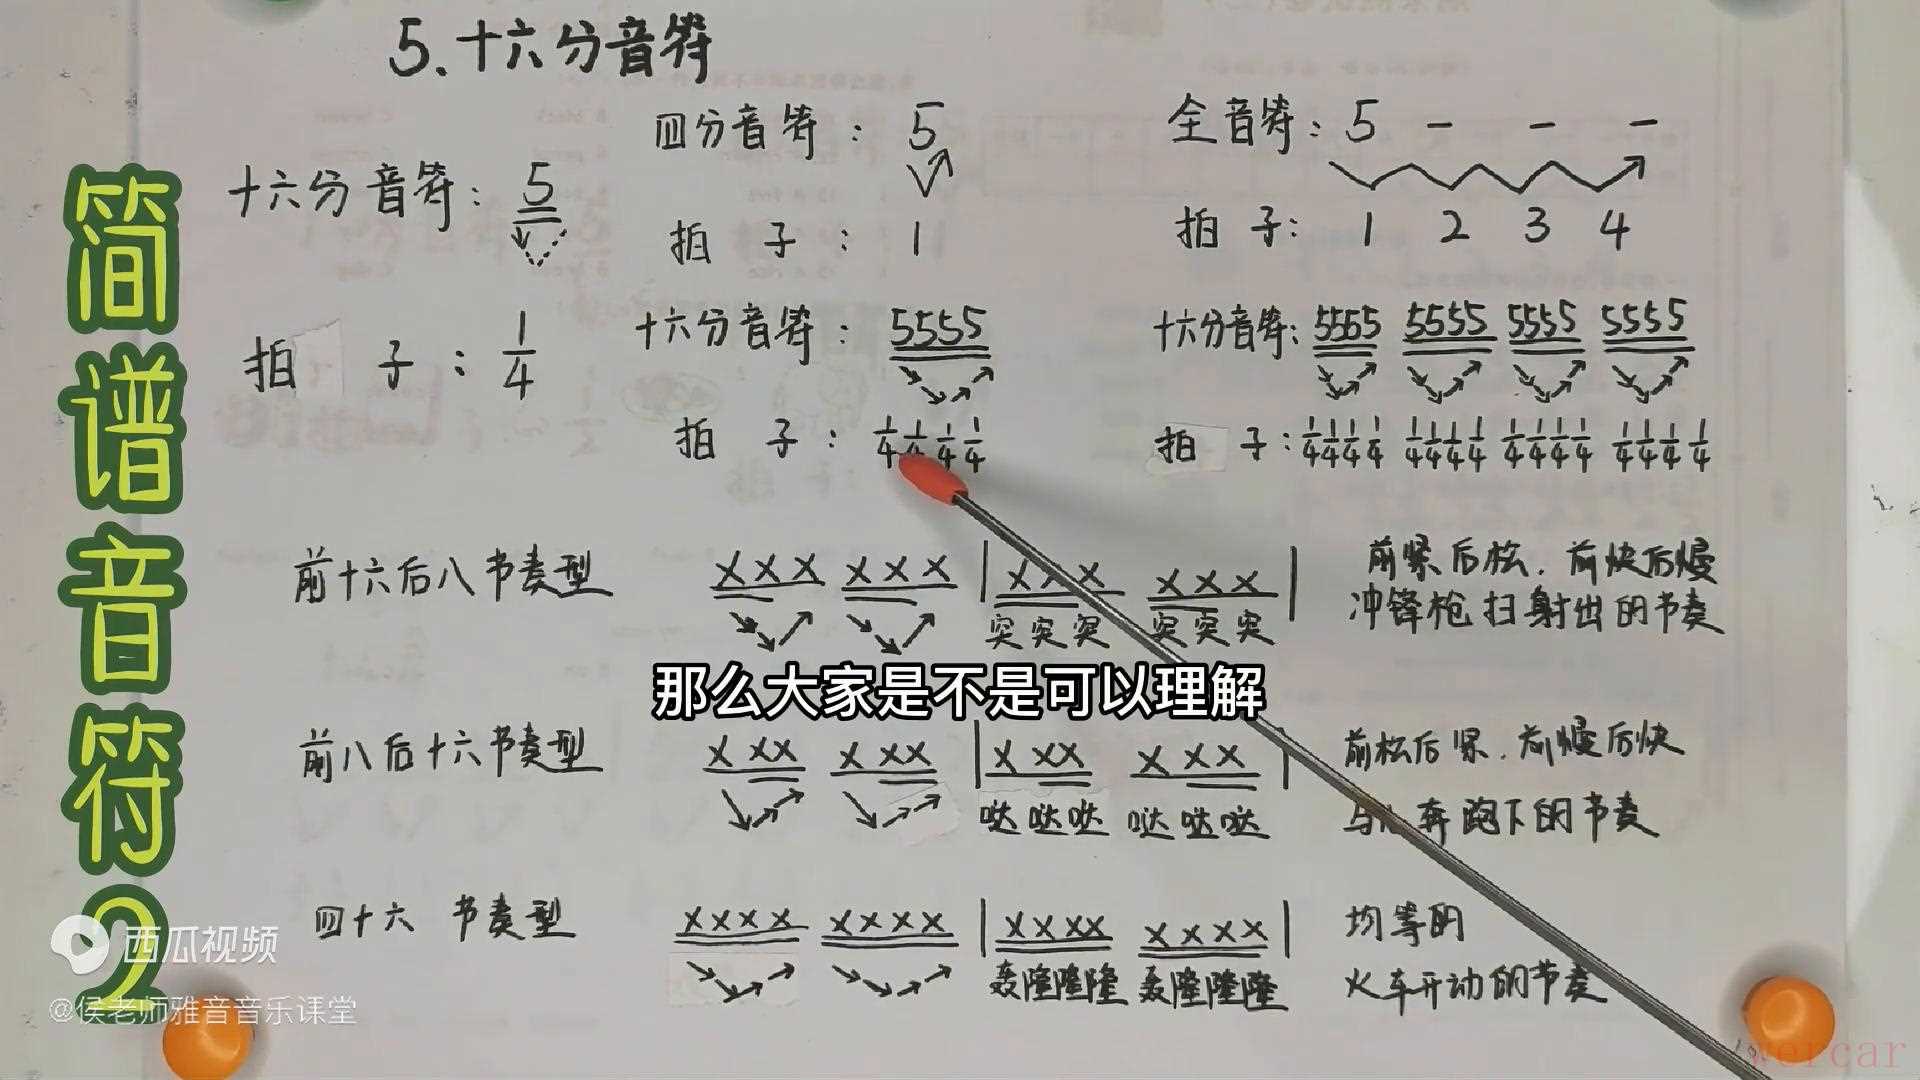 5.十六分音符
四分音符: 5
全音符: 5 - - -
十六分音符: 5
拍子: 1
拍子: 1 2 3 4
十六分音符: 5555
十六分音符: 5555 5555 5555 5555
拍子: 1/4
拍子: 1/4 1/4 1/4 1/4
拍子: 1/4 1/4 1/4 1/4 1/4 1/4 1/4 1/4 1/4 1/4 1/4 1/4 1/4 1/4 1/4 1/4
前十六后八节奏型 XXX XXX | XXX XXX | 前紧后松.前快后慢
突突突 突突突 冲锋枪扫射出的节奏
那么大家是不是可以理解
前八后十六节奏型 X XX X XX | X XX X XX | 前松后紧.前慢后快
哒哒哒 哒哒哒 奔跑下的节奏
四十六节奏型 XXXX XXXX | XXXX XXXX | 均等的
轰隆隆隆 轰隆隆隆 火车开动的节奏
简谱音符2
西瓜视频
@侯老师雅音音乐课堂
wercar